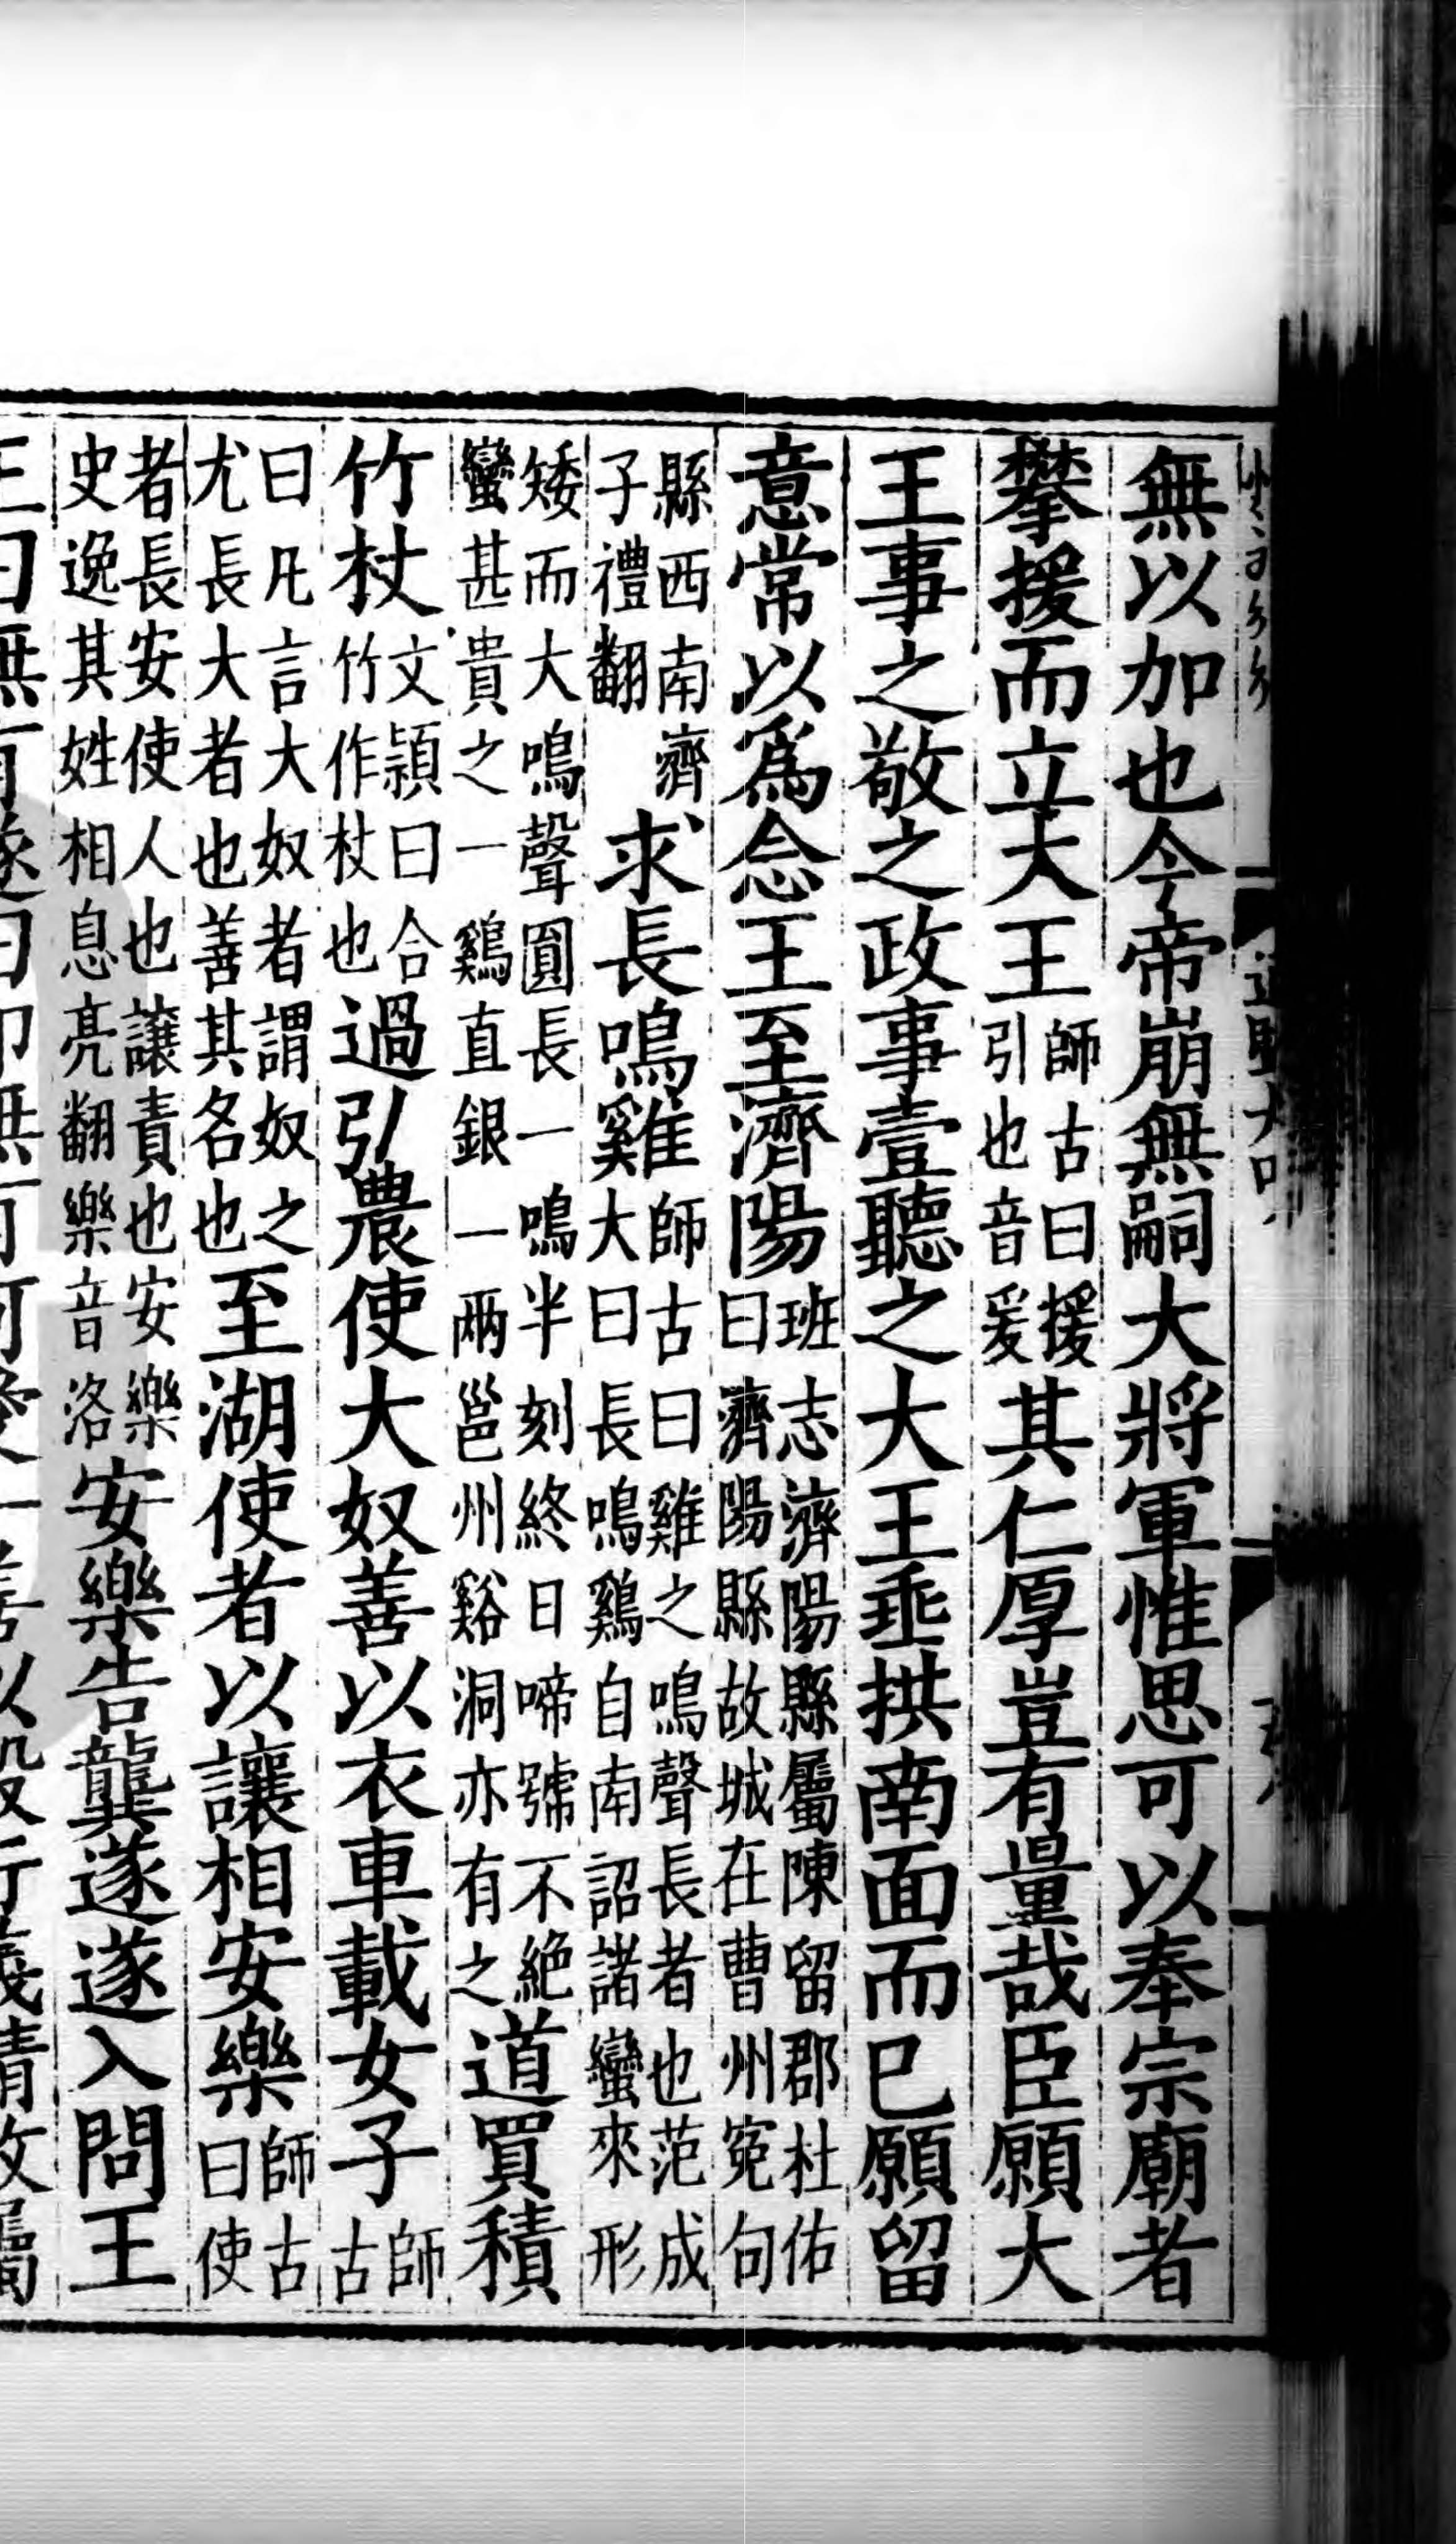 無以加也今帝崩無嗣大將軍惟思可以奉宗廟者
攀援而立大王師古曰援引也音爰其仁厚豈有量哉臣願大
王事之敬之政事壹聽之大王垂拱南面而已願留
意常以爲念王至濟陽班志濟陽縣屬陳留郡杜佑曰濟陽縣故城在曹州冤句
縣西南濟子禮翻求長鳴雞師古曰雞之鳴聲長者也范成大曰長鳴鷄自南詔諸蠻來形
矮而大鳴聲圓長一鳴半刻終日啼號不絶蠻甚貴之一鷄直銀一兩邕州谿洞亦有之道買積
竹杖文穎曰合竹作杖也過弘農使大奴善以衣車載女子師古
曰凡言大奴者謂奴之尤長大者也善其名也至湖使者以讓相安樂師古曰使
者長安使人也讓責也安樂史逸其姓相息亮翻樂音洛安樂告龔遂遂入問王